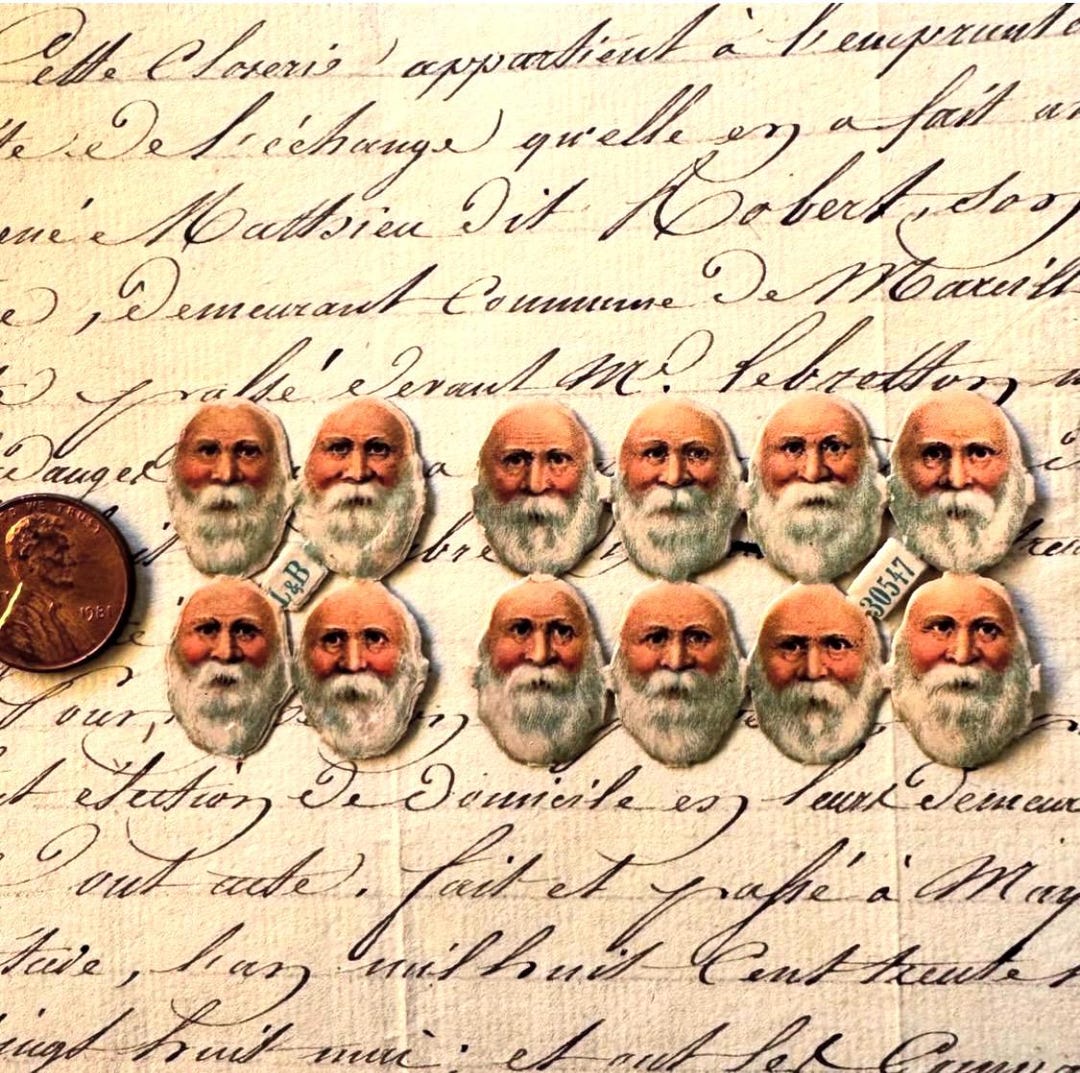 Cette Closerie appartient à l'emprunte
te de l'échange qu'elle en a fait a
ené Mathieu dit Robert, son
e, demeurant Commune de Mareill
passé devant Me. Lebretton
Danger a
IN GOD WE TRUST
1981
bre
L&B
30547
Pour,
t élection de domicile en leurs demeur
Dont acte, fait et passé à May
, l'an mil huit Cent trente
ingt huit mai; et ont les Compa